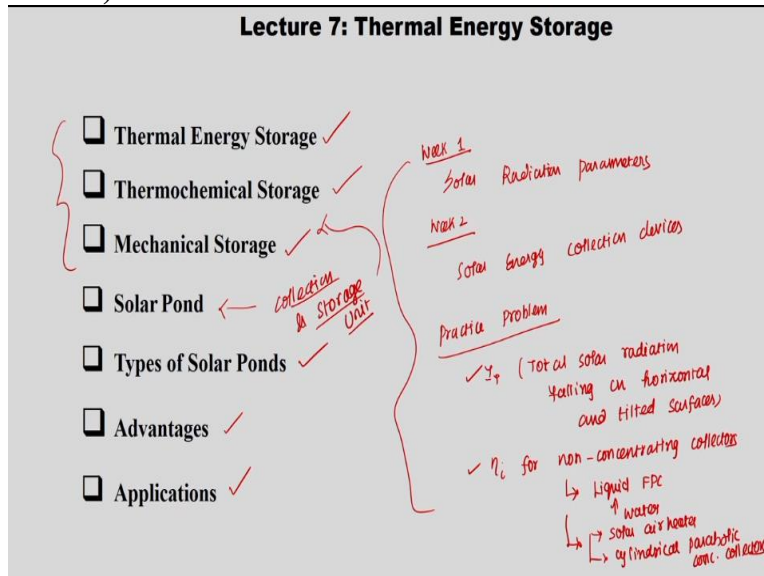 Lecture 7: Thermal Energy Storage
Thermal Energy Storage
Thermochemical Storage
Mechanical Storage
Solar Pond
collection
& Storage
Unit
Types of Solar Ponds
Advantages
Applications
Week 1
Solar Radiation parameters
Week 2
Solar Energy collection devices
Practice Problem
(Total solar radiation
falling on horizontal
and tilted surfaces)
ηi for non-concentrating collectors
Liquid FPC
water
solar air heater
cylindrical parabolic
conc. collectors